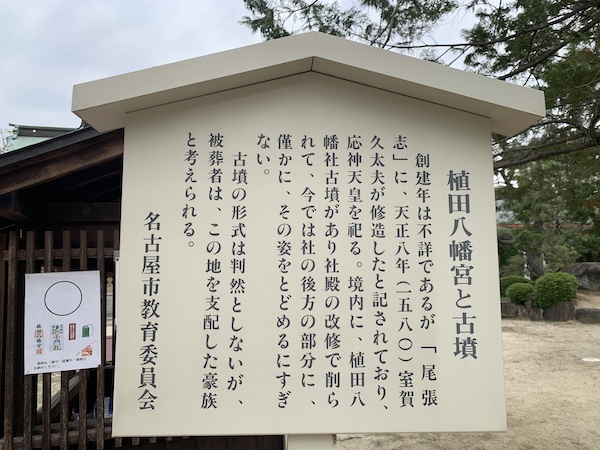 植田八幡宮と古墳
創建年は不詳であるが、「尾張
志」に、天正八年（一五八〇）室賀
久太夫が修造したと記されており、
応神天皇を祀る。境内に、植田八
幡社古墳があり社殿の改修で削ら
れて、今では社の後方の部分に、
僅かに、その姿をとどめるにすぎ
ない。
古墳の形式は判然としないが、
被葬者は、この地を支配した豪族
と考えられる。
名古屋市教育委員会